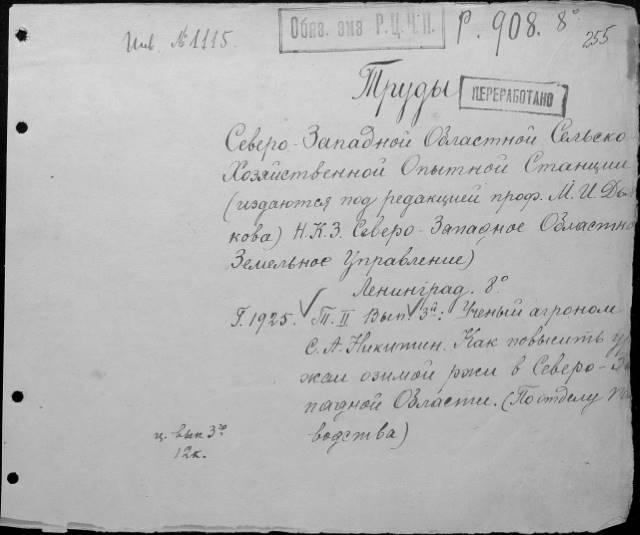 Инв. №1115.
Обяз. экз Р.Ц.Ч.П.
Р. 908. 8°
255
Труды
ПЕРЕРАБОТАНО
Северо-Западной Областной Сельско
Хозяйственной Опытной Станции
(издаются под редакцией проф. М. И. Дья
кова) Н.К.З. Северо-Западное Областно
Земельное Управление)
Ленинград. 8°
Г. 1925. Т. II Вып. 3й: Ученый агроном
С. А. Никитин. Как повысить у
жаи озимой ржи в Северо-За
падной Области. (По отделу
водства)
ц. вып 3го
12к.